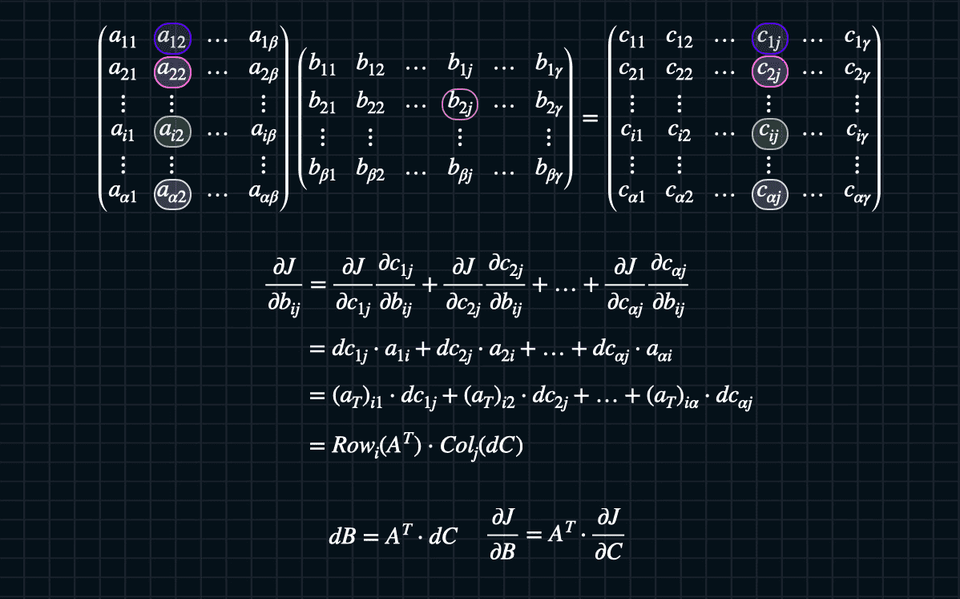 a11 a12 … a1β
a21 a22 … a2β
⋮ ⋮ ⋮
ai1 ai2 … aiβ
⋮ ⋮ ⋮
aα1 aα2 … aαβ
b11 b12 … b1j … b1γ
b21 b22 … b2j … b2γ
⋮ ⋮ ⋮ ⋮
bβ1 bβ2 … bβj … bβγ
=
c11 c12 … c1j … c1γ
c21 c22 … c2j … c2γ
⋮ ⋮ ⋮ ⋮
ci1 ci2 … cij … ciγ
⋮ ⋮ ⋮ ⋮
cα1 cα2 … cαj … cαγ
∂J/∂bij = ∂J/∂c1j ∂c1j/∂bij + ∂J/∂c2j ∂c2j/∂bij + … + ∂J/∂cαj ∂cαj/∂bij
= dc1j · a1i + dc2j · a2i + … + dcαj · aαi
= (aT)i1 · dc1j + (aT)i2 · dc2j + … + (aT)iα · dcαj
= Rowi(A^T) · Colj(dC)
dB = A^T · dC ∂J/∂B = A^T · ∂J/∂C